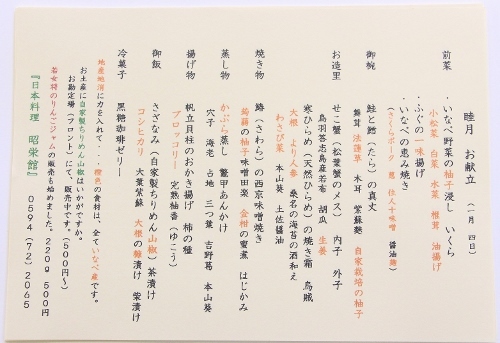 睦月 お献立 (一月 四日)
前菜
いなべ野菜の柚子浸し いくら
小松菜 白菜 水菜 椎茸 油揚げ
・ふぐの一味揚げ
・いなべの恵み焼き
(さくらポーク 葱 仕人十味噌 醤油麹)
御椀
鮭と鱈(たら)の真丈
舞茸 法蓮草 木耳 紫蘇麺 自家栽培の柚子
お造里
せこ蟹(松葉蟹のメス) 内子 外子
鳥羽答志島産若布 胡瓜 生姜
寒ひらめ(天然ひらめ)の焼き霜 烏賊
大根 より人参 桑名の海苔の酒和え
わさび菜 本山葵 土佐醤油
焼き物
鰆(さわら)の西京味噌焼き
蒟蒻の柚子味噌田楽 金柑の蜜煮 はじかみ
蒸し物
かぶら蒸し 鼈甲あんかけ
穴子 海老 占地 三つ葉 吉野葛 本山葵
揚げ物
帆立貝柱のおかき揚げ 柿の種
ブロッコリー 完熟柚香(ゆこう)
御飯
さざなみ(自家製ちりめん山椒)茶漬け
コシヒカリ 大葉紫蘇 大根の麹漬け 柴漬け
冷菓子
黒糖珈琲ゼリー
地産地消に力を入れて・・・橙色の食材は、全ていなべ産です。
お土産に自家製ちりめん山椒はいかがですか。
お勘定場(フロント)にて、販売中です。(600円~)
若女将のりんごジャムの販売も始めました。220g 500円
『日本料理 昭栄館』 0594(72)2065